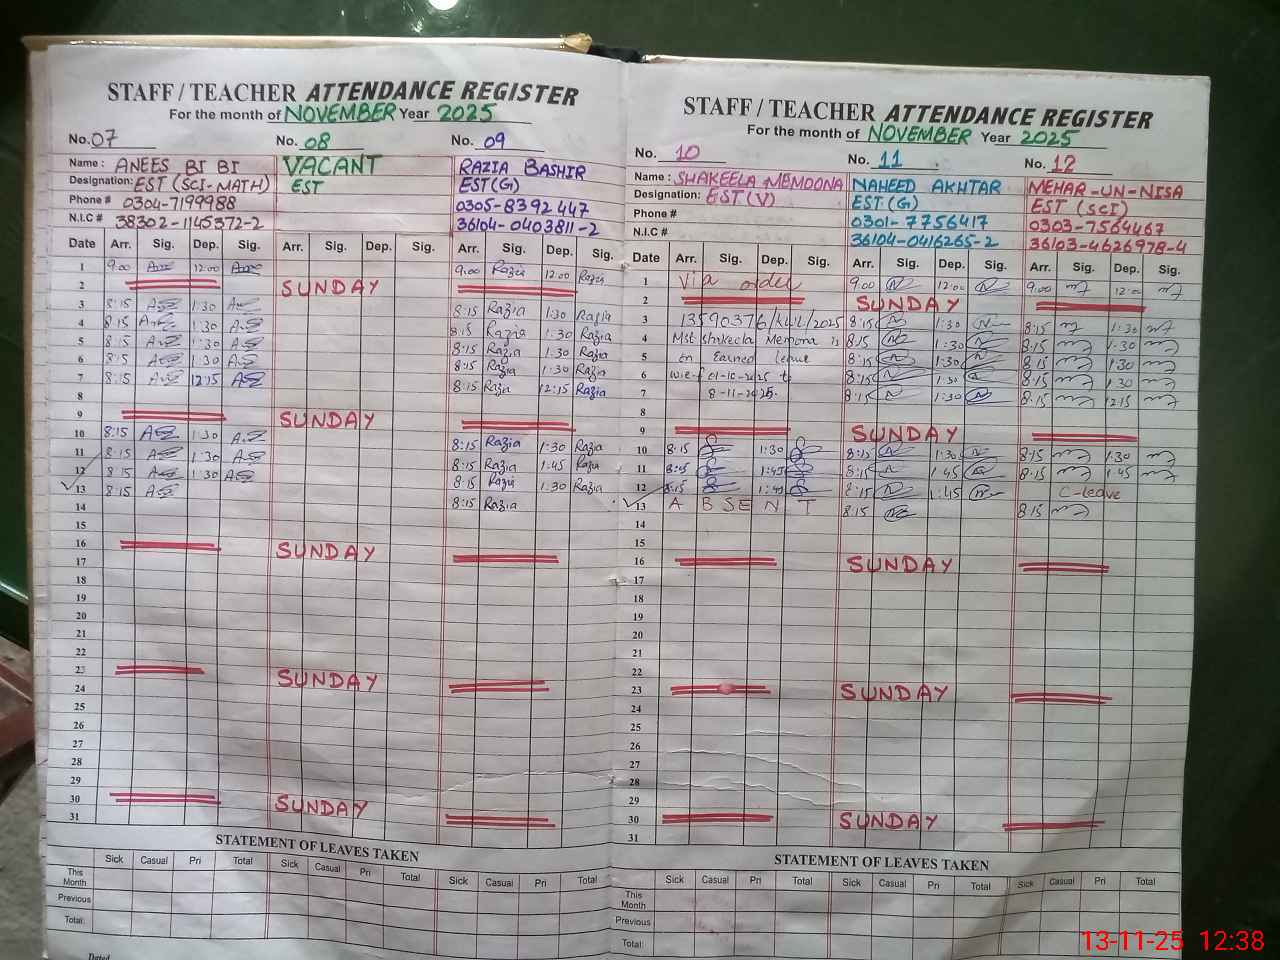 STAFF / TEACHER ATTENDANCE REGISTER
For the month of NOVEMBER Year 2025
No. 07 No. 08 No. 09
Name : ANEES BI BI VACANT RAZIA BASHIR
Designation: EST (SCI-MATH) EST EST(G)
Phone # 0304-7199988 0305-8392447
N.I.C # 38302-1145372-2 36104-0403811-2
Date Arr. Sig. Dep. Sig. Arr. Sig. Dep. Sig. Arr. Sig. Dep. Sig.
1 9.00 12:00 9.00 Razia 12:00 Razia
2 SUNDAY
3 8:15 1:30 8:15 Razia 1:30 Razia
4 8:15 1:30 8:15 Razia 1:30 Razia
5 8:15 1:30 8:15 Razia 1:30 Razia
6 8:15 1:30 8:15 Razia 1:30 Razia
7 8:15 12:15 8:15 Razia 12:15 Razia
8
9 SUNDAY
10 8:15 1:30 8:15 Razia 1:30 Razia
11 8:15 1:30 8:15 Razia 1:45 Razia
12 8:15 1:30 8:15 Razia 1:30 Razia
13 8:15 8:15 Razia
14
15
16 SUNDAY
17
18
19
20
21
22
23 SUNDAY
24
25
26
27
28
29
30 SUNDAY
31
STATEMENT OF LEAVES TAKEN
Sick Casual Pri Total Sick Casual Pri Total Sick Casual Pri Total
This Month
Previous
Total:
Dated
STAFF / TEACHER ATTENDANCE REGISTER
For the month of NOVEMBER Year 2025
No. 10 No. 11 No. 12
Name : SHAKEELA MEMOONA NAHEED AKHTAR MEHAR-UN-NISA
Designation: EST(V) EST(G) EST (SCI)
Phone # 0301-7756417 0303-7564467
N.I.C # 36104-0416265-2 36103-4626978-4
Date Arr. Sig. Dep. Sig. Arr. Sig. Dep. Sig. Arr. Sig. Dep. Sig.
1 Via order 9.00 12:00 9.00 12:00
2 SUNDAY
3 13590376/ /2025 8:15 1:30 8:15 1:30
4 Mst shakeela Memoona is 8:15 1:30 8:15 1:30
5 on Earned leave 8:15 1:30 8:15 1:30
6 w.e.f 01-10-2025 to 8:15 1:30 8:15 1:30
7 8-11-2025. 8:15 1:30 8:15 12:15
8
9 SUNDAY
10 8:15 1:30 8:15 1:30 8:15 1:30
11 8:15 1:45 8:15 1:45 8:15 1:45
12 8:15 1:45 8:15 1:45 C-leave
13 A B S E N T 8:15 8:15
14
15
16 SUNDAY
17
18
19
20
21
22
23 SUNDAY
24
25
26
27
28
29
30 SUNDAY
31
STATEMENT OF LEAVES TAKEN
Sick Casual Pri Total Sick Casual Pri Total Sick Casual Pri Total
This Month
Previous
Total:
13-11-25 12:38